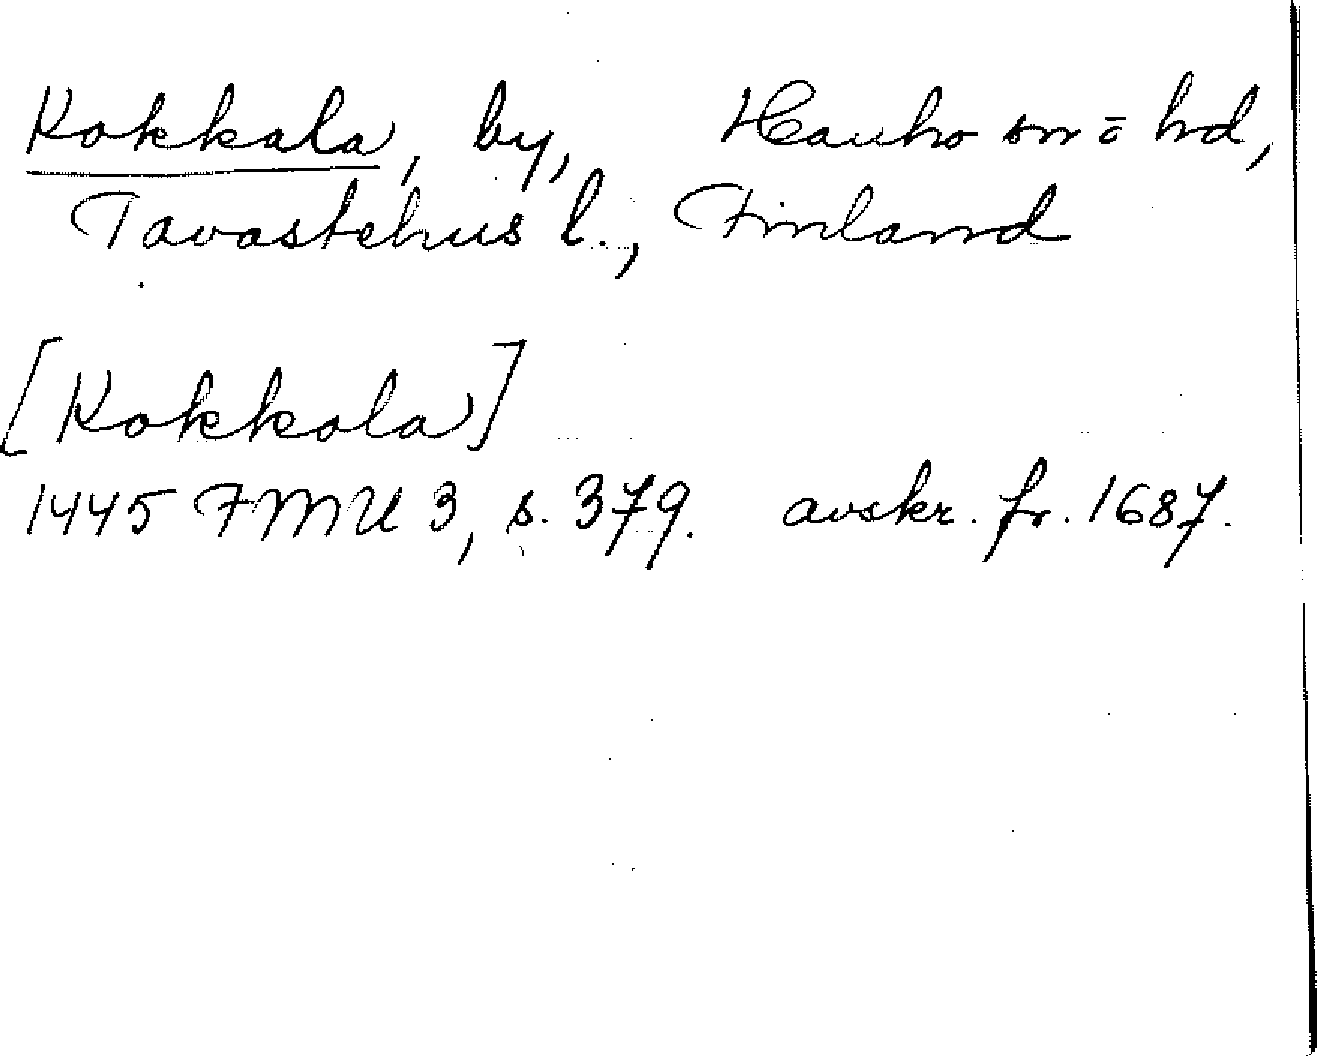 Kokkala, by, Hauho sn o hd,
Tavastehus l., Finland
[Kokkola]
1445 FMU 3, s. 379. avskr. fr. 1687.